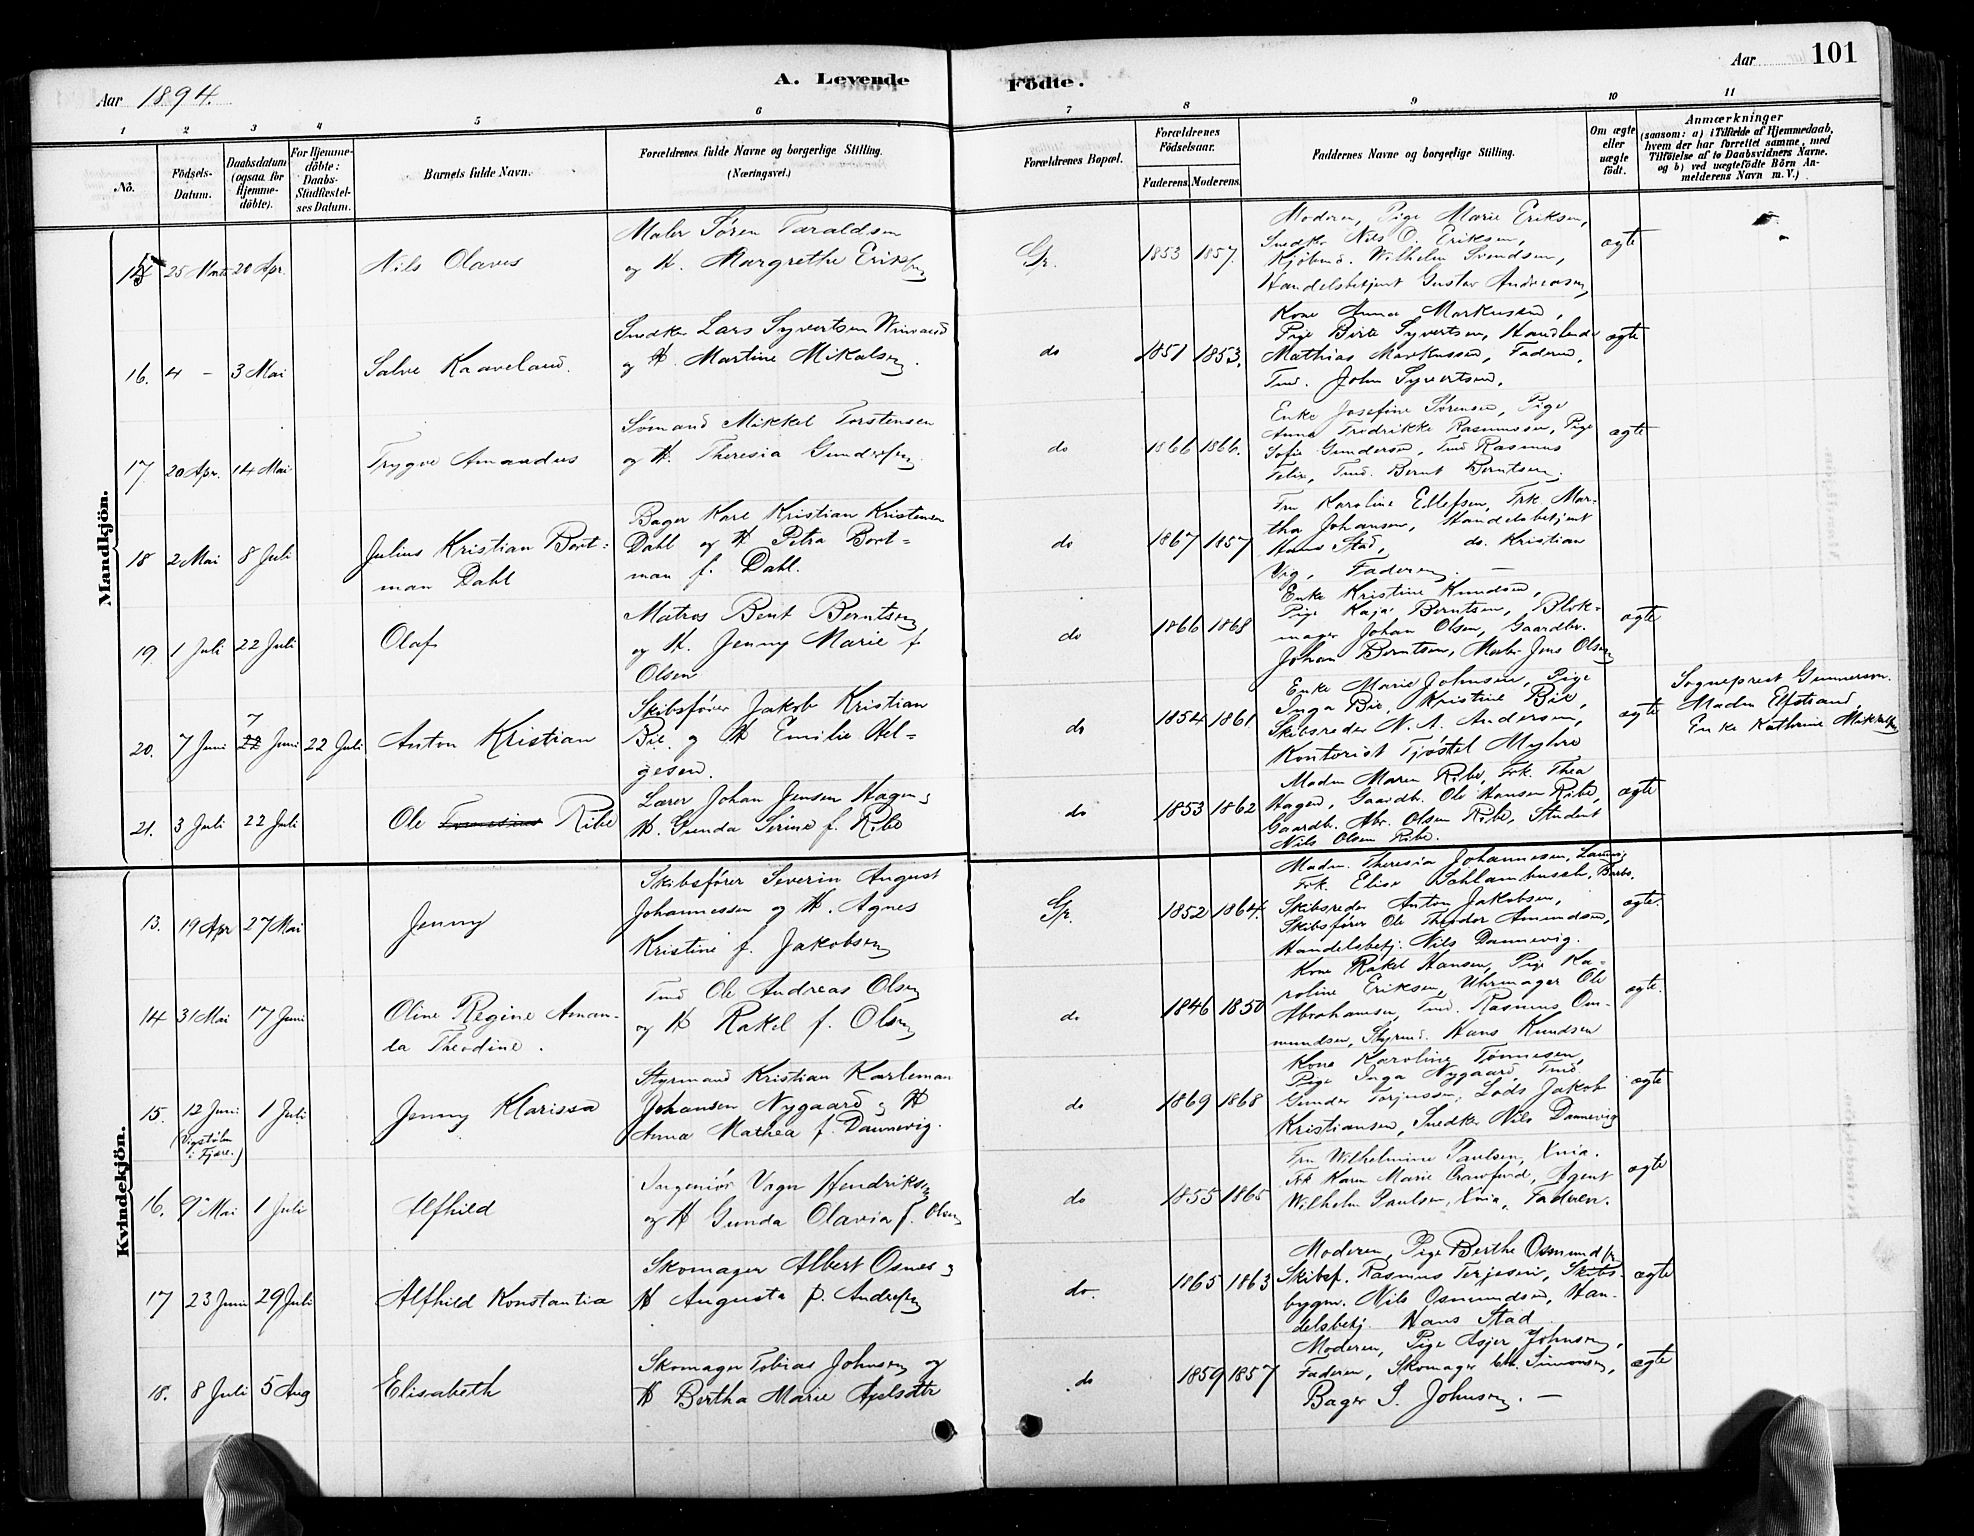 Aar 1894.
A. Levende
Födte.
Aar
101
1 2 3 4 5 6 7 8 9 10 11
No.
Födsels-Datum.
Daabsdatum (ogsaa for Hjemme-döbte).
For Hjemme-döbte: Daabs-Stadfæstel-ses Datum.
Barnets fulde Navn.
Forældrenes fulde Navne og borgerlige Stilling.
(Næringsvei.)
Forældrenes Bopæl.
Forældrenes Födselsaar.
Faderens. Moderens.
Faddernes Navne og borgerlige Stilling.
Om ægte eller uægte födt.
Anmærkninger
(saasom: a) i Tilfælde af Hjemmedaab, hvem der har forrettet samme, med Tilföielse af to Daabsvidners Navne, og b) ved uægtefödte Börn Anmelderens Navn m. V.)
Mandkjön.
15 25 Marts 20 Apr. Nils Olaves
Maler Søren Taraldsen
og H. Margrethe Eriksen
Gr. 1853 1857.
Moderen, Pige Marie Eriksen,
Snedker Nils O. Eriksen,
Kjøbmd. Wilhelm Svendsen,
Handelsbetjent Gustav Andreasen,
ægte
16. 4 - 3 Mai Salve Kaaveland.
Snedker Lars Syvertsen
og H. Martine Mikalsen.
do 1851 1853.
Kone Anna Markussen,
Pige Birte Syvertsen, Handlende
Mathias Markussen, Faderen,
Tmd. John Syvertsen.
ægte
17 20 Apr. 14 Mai Trygve Amandus
Sömand Mikkel Torstensen
og H. Theresia Gundersen
do 1866 1866.
Enke Josefine Sørensen, Pige
Anna Fredrikke Rasmussen, Pige
Sofie Gundersen, Tmd Rasmus
Felix, Tmd. Bernt Berntsen.
ægte
18 2 Mai 8 Juli Julius Kristian Bort=
man Dahl
Bager Karl Kristian Kristensen
Dahl og H Petra Bort=
man f. Dahl.
do 1867 1857
Fru Karoline Ellefsen, Frk. Mar-
tha Johansen, Handelsbetjent
Hans Stad, do. Kristian
Vig, Faderen. —
19 1 Juli 22 Juli Olaf
Matros Bent Berntsen
og H. Jenny Marie f.
Olsen
do 1866 1868
Enke Kristine Knudsen,
Pige Kaja Berntsen, Blok-
mager Johan Olsen, Gaardbr.
Johan Berntsen, Jens Olsen
ægte
20. 7 Juni 7 Juni 22 Juli Anton Kristian
Skibsfører Jakob Kristian
Bie og H Emilie Hel-
gesen.
do 1854 1861
Enke Marie Johnsen, Pige
Inga Bie, Kristine Bie,
Skibsreder N. A. Andersen,
Kontorist Tjøstel Myhre
ægte
Sogneprest Gunnerson.
Madm Elfstrand,
Enke Kathrine Mikkelsen
21. 3 Juli 22 Juli Ole Ribe
Lærer Johan Jensen Hagen og
H. Gunda Serine f. Ribe
do 1853 1862
Madm Maren Ribe, Frk. Thea
Hagen, Gaardb. Ole Hansen Ribe,
Gaardb. Abr. Olsen Ribe, Student
Nils Olsen Ribe.
ægte
Kvindekjön.
13. 19 Apr 27 Mai Jenny
Skibsfører Severin August
Johannessen og H. Agnes
Kristine f. Jakobsen
Gr. 1852 1864.
Madm. Theresia Johannesen,
Frk. Elise
Skibsreder Anton Jakobsen,
Skibsfører Ole Theodor Amundsen,
Handelsbetj. Nils Dannevig.
ægte.
14 31 Mai 17 Juni Oline Regine Aman-
da Theodine.
Tmd Ole Andreas Olsen
og H Rakel f. Olsen
do 1846 1850
Kone Rakel Hansen, Pige Ka-
roline Eriksen, Uhrmager Ole
Abrahamsen, Tmd. Rasmus Os-
mundsen, Styrmd. Hans Knudsen
ægte.
15. 12 Juni 1 Juli Jenny Klarissa
(Vigstølen i Fjære.)
Styrmand Kristian Karleman
Johansen Nygaard og H
Anna Mathea f. Dannevig.
do 1869 1868
Kone Karoline Tønnesen,
Pige Inga Nygaard, Tmd
Gunder Torjussen, Lods Jakob
Kristiansen, Snedker Nils Dannevig
ægte
16. 9 Mai 1 Juli Alfhild
Ingeniör Vagn Hendriksen
og H Gunda Olavia f. Olsen
do 1855 1865
Fru Wilhelmine Paulsen, Xnia.
Frk Karen Marie Crawfurd, Agent
Wilhelm Paulsen, Xnia, Faderen.
ægte
17 23 Juni 29 Juli Alfhild Konstantia
Skomager Albert Osnes og
H Augusta f. Andresen
do. 1865 1863
Moderen, Pige Berthe Osmundsen
Skibsf. Rasmus Terjesen, Skibs-
bygm. Nils Osmundsen, Han-
delsbetj. Hans Stad
ægte
18. 8 Juli 5 Aug Elisabeth
Skomager Tobias Johnsen og
H Bertha Marie Axelsdtr
do 1859 1857
Moderen, Pige Asjer Johnsen,
Faderen, Skomager Simonsen,
Bager S. Johnsen. —
ægte